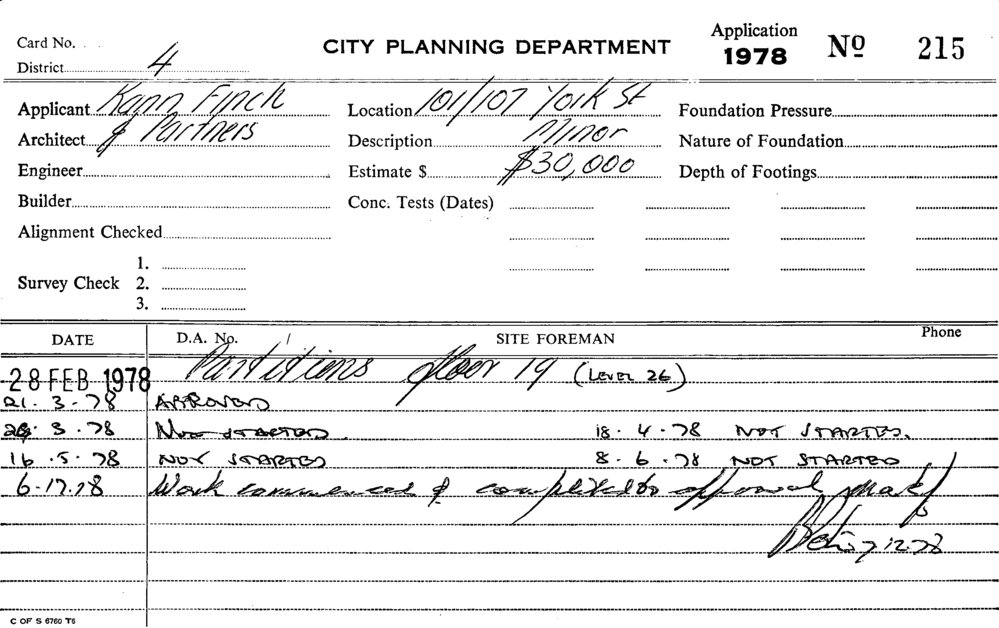 Card No.
CITY PLANNING DEPARTMENT
Application 1978 No 215
District 4
Applicant Kann Finch Location 101/107 York St Foundation Pressure
Architect & Partners Description Minor Nature of Foundation
Engineer Estimate $ $30,000 Depth of Footings
Builder Conc. Tests (Dates)
Alignment Checked
1.
Survey Check 2.
3.
DATE D.A. No. SITE FOREMAN Phone
28 FEB 1978 Partitions floor 19 (LEVEL 26)
21.3.78 APPROVED
3.78 NOT STARTED 18.4.78 NOT STARTED.
16.5.78 NOT STARTED 8.6.78 NOT STARTED
6.12.78 Work commenced & completed to approval
7.12.78
C OF S 6760 T6